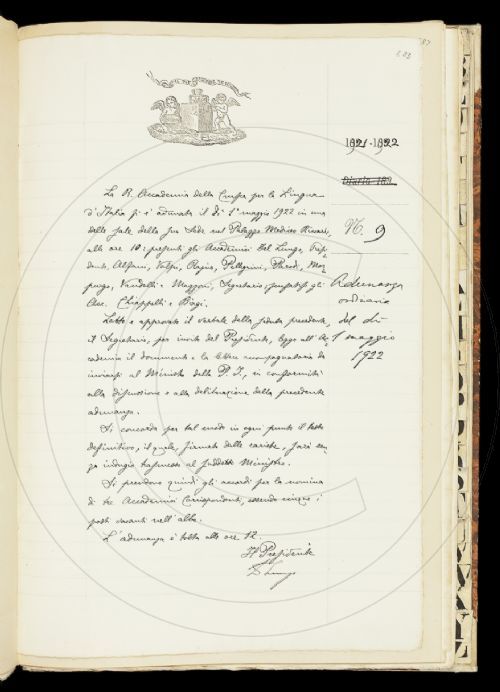 1921-1922
Diario 182
N. 9
Adunanza
ordinaria
del dì
1 maggio
1922
La R. Accademia della Crusca per la Lingua
d'Italia si è adunata il dì 1° maggio 1922 in una
delle sale della sua sede nel Palazzo Mediceo Riccardi,
alle ore 10: presenti gli Accademici Del Lungo, Presi-
dente, Alfani, Volpi, Rajna, Pellegrini, Parodi, Mor-
purgo, Vandelli e Mazzoni, Segretario; giustificati gli
Acc. Chiappelli e Biagi.
Letto e approvato il verbale della seduta precedente,
il Segretario, per invito del Presidente, legge all'Ac-
cademia il documento e la lettera accompagnatoria da
inviarsi al Ministro della P. I., in conformità
alla discussione e alla deliberazione della precedente
adunanza.
Si concorda per tal modo in ogni punto il testo
definitivo, il quale, firmato dalle cariche, sarà sen-
za indugio trasmesso al suddetto Ministro.
Si prendono quindi gli accordi per la nomina
di tre Accademici Corrispondenti, essendo cinque i
posti vacanti nell'albo.
L'adunanza è tolta alle ore 12.
Il Presidente